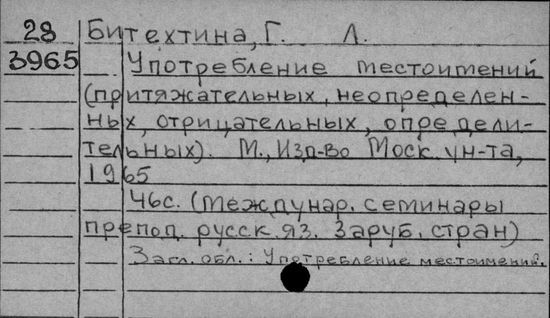 28 Битехтина, Г. Л.
3965 Употребление местоимений
(притяжательных, неопределен-
ных, отрицательных, определи-
тельных). М., Изд-во Моск. ун-та,
1965
46с. (Междунар. семинары
препод. русск. яз. Заруб. стран)
Загл. обл.: Употребление местоимений.